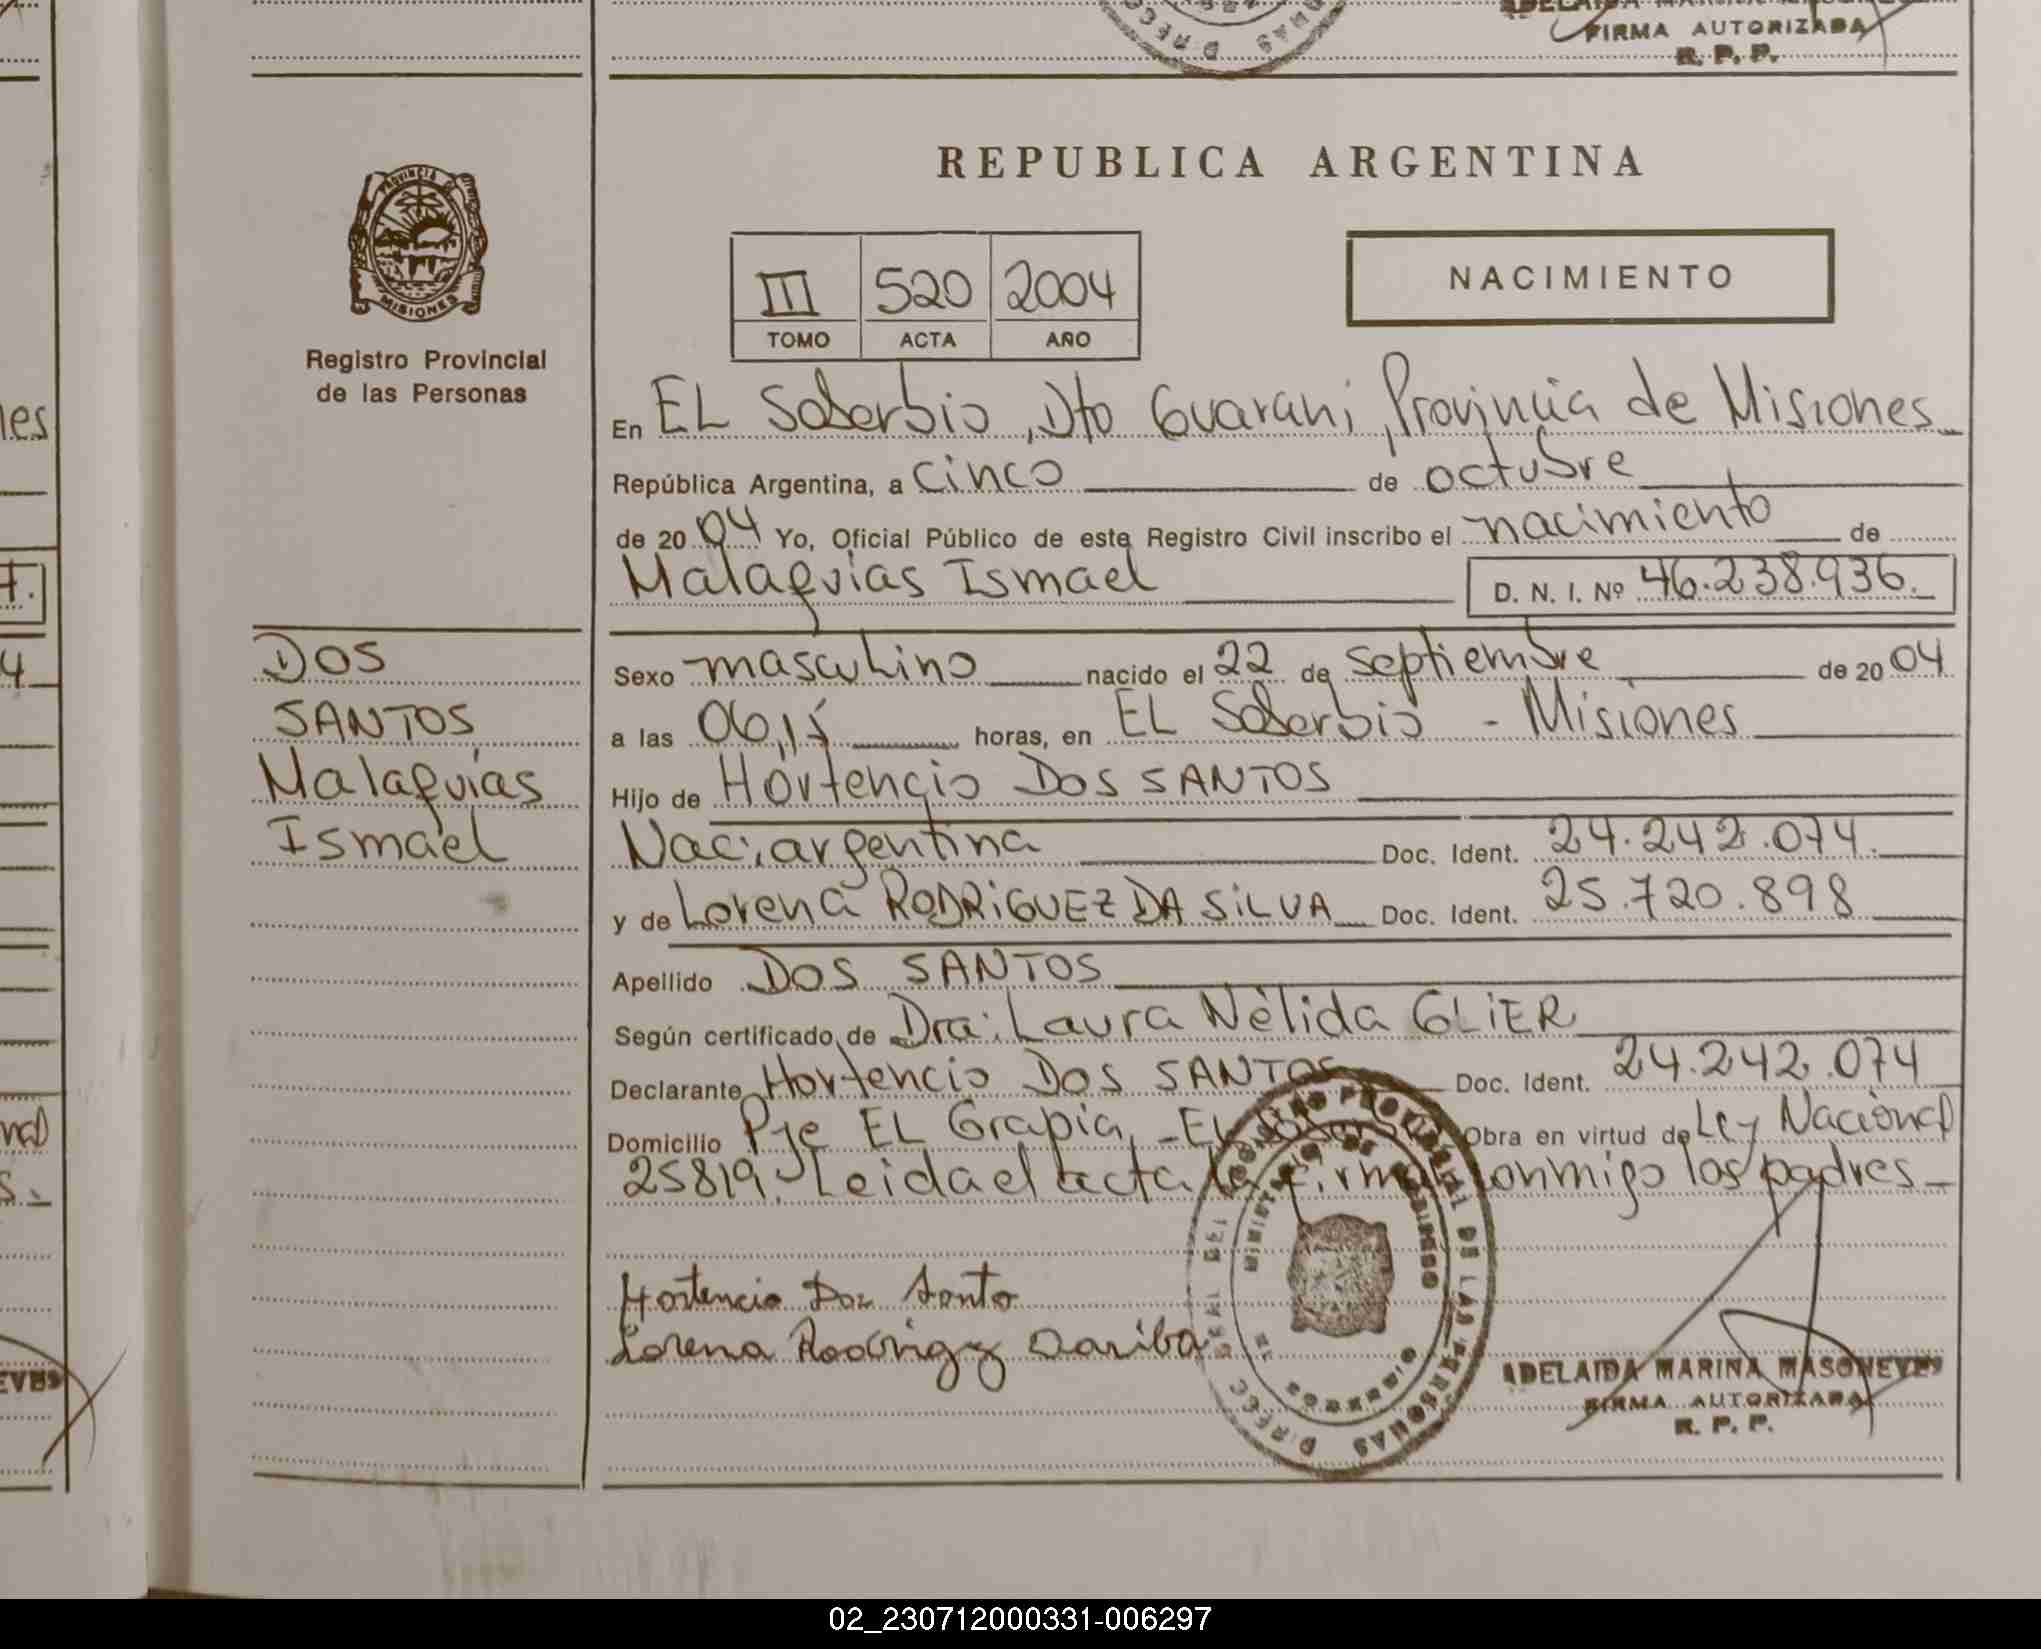 FIRMA AUTORIZADA
R. P. P.
PROVINCIA DE
MISIONES
Registro Provincial
de las Personas
REPUBLICA ARGENTINA
III 520 2004
TOMO ACTA AÑO
NACIMIENTO
En EL Soberbio, Dto Guarani, Provincia de Misiones
República Argentina, a cinco de octubre
de 2004 Yo, Oficial Público de este Registro Civil inscribo el nacimiento de
Malaquias Ismael D. N. I. Nº 46.238.936.
DOS
SANTOS
Malaquías
Ismael
Sexo masculino nacido el 22 de septiembre de 2004
a las 06,15 horas, en EL Soberbio - Misiones
Hijo de Hortencio DOS SANTOS
Nac: argentina Doc. Ident. 24.242.074.
y de Lorena RODRIGUEZ DA SILVA Doc. Ident. 25.720.898
Apellido DOS SANTOS
Según certificado de Dra: Laura Nélida GLIER
Declarante Hortencio DOS SANTOS Doc. Ident. 24.242.074
Domicilio Pje EL Grapia, - EL Obra en virtud de Ley Nacional
25819. Leida el acta la firman conmigo los padres
Hortencio Dos Santo
Lorena Rodrigz Dasilba
REGISTRO PROVINCIAL DE LAS PERSONAS
ADELAIDA MARINA MASONEVES
FIRMA AUTORIZADA
R. P. P.
02_230712000331-006297